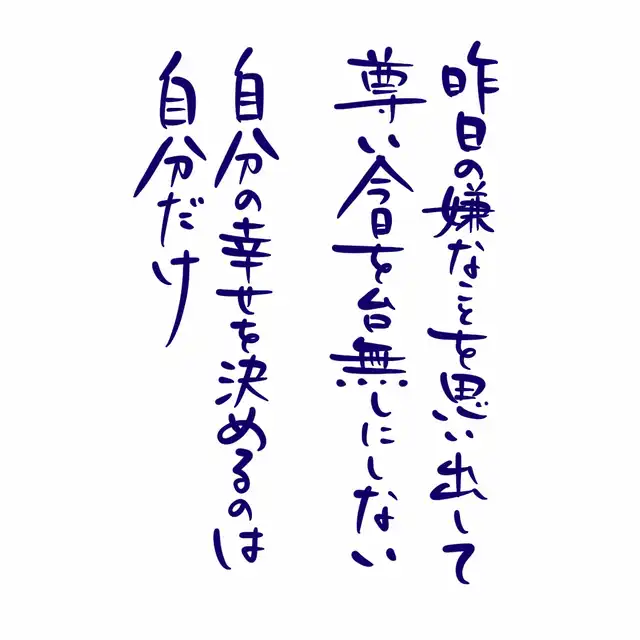 昨日の嫌なことを思い出して
尊い今日を台無しにしない
自分の幸せを決めるのは
自分だけ